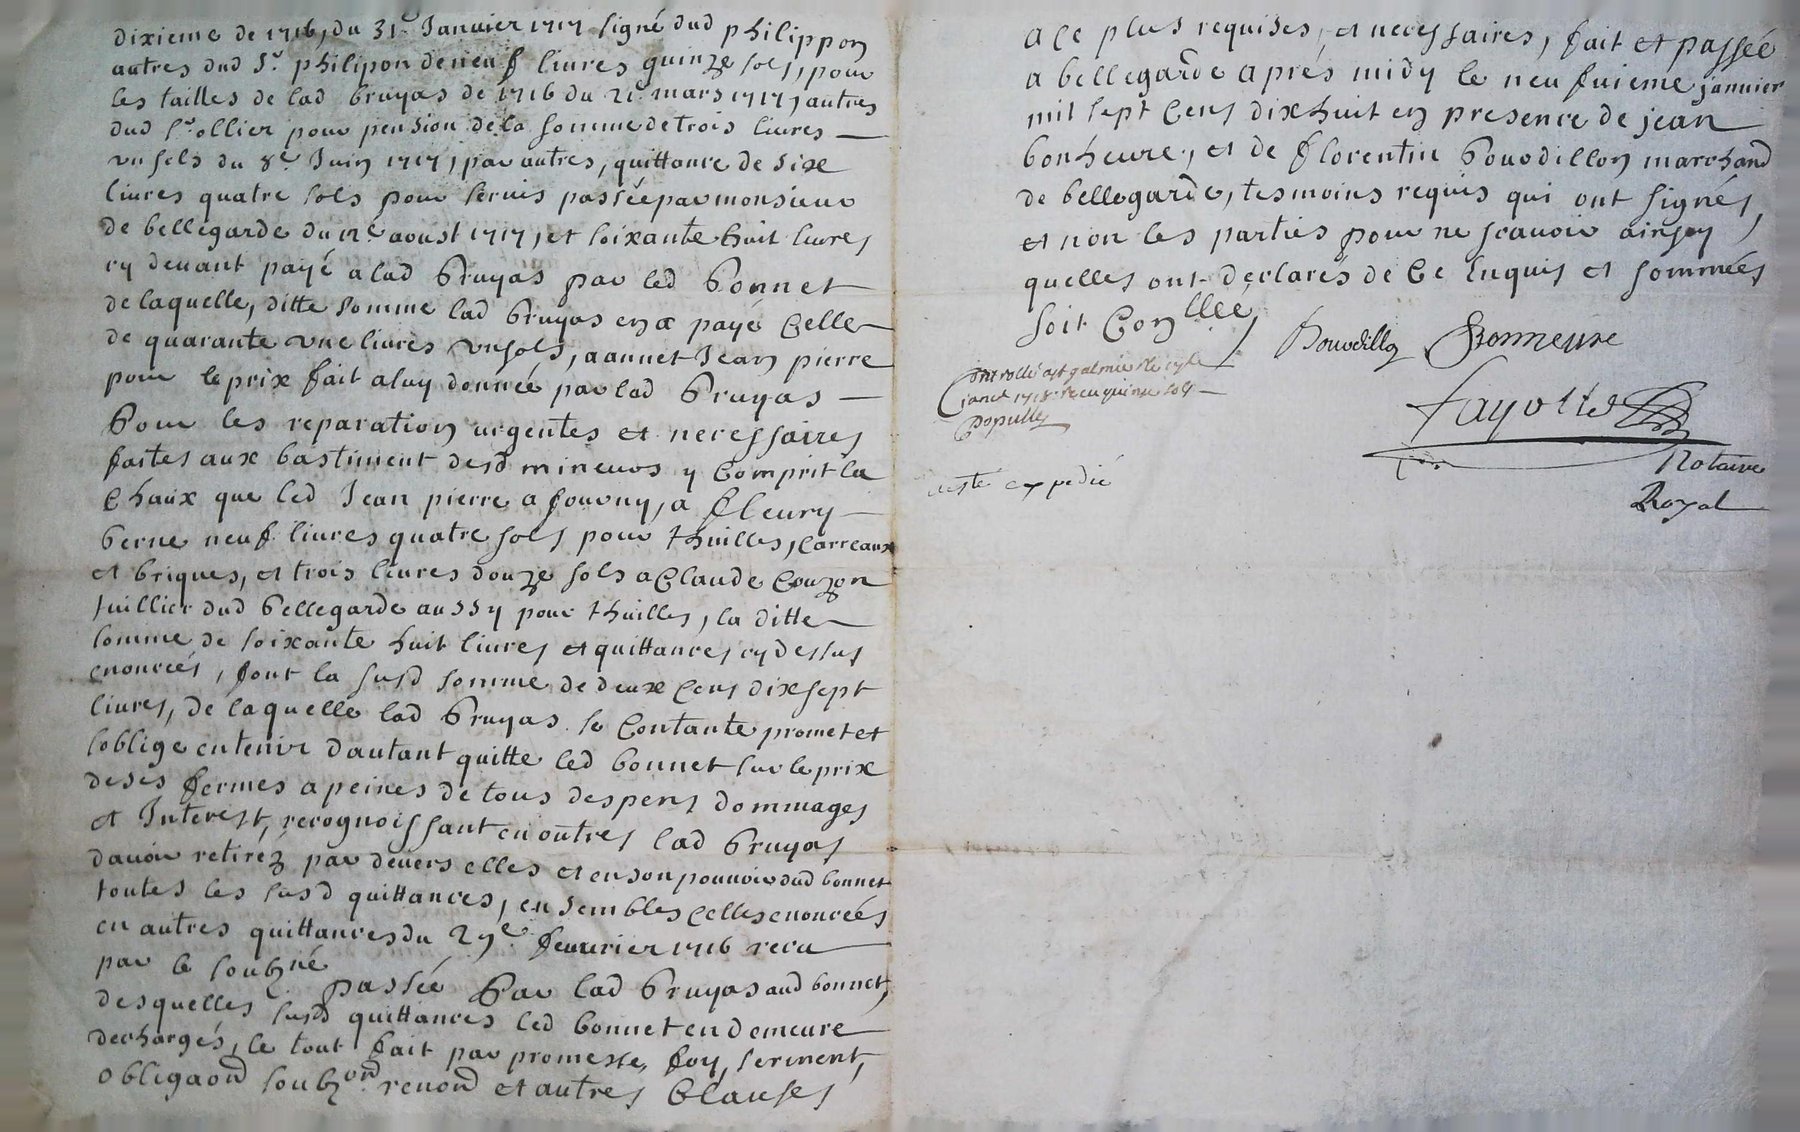 dixieme de 1716, du 31e Januier 1717 signé dud philippon
autres dud Sr philipon de neuf liures quinze sols, pour
les tailles de lad bruyas de 1716 du 21e mars 1717, autres
dud Sr ollier pour pension de la somme de trois liures
un sols du 8e Juin 1717, par autres, quittance de sixe
liures quatre sols pour seruis passée par monsieur
de bellegarde du aoust 1717, et soixante huit liures
cy deuant payé a lad bruyas par led bonnet
de laquelle, ditte somme lad bruyas en a payé celle
de quarante une liures un sols, a annet Jean pierre
pour le prix fait a luy donnée par lad bruyas
Pour les reparation urgentes et necessaires
faites aux bastiment desd mineurs y comprit la
chaux que led Jean pierre a fourny, a fleury
berne neuf liures quatre sols pour thuilles, carreaux
et briques, et trois liures douze sols a Claude Couzon
tuillier dud bellegarde aussy pour thuilles, la ditte
somme de soixante huit liures et quittances cy dessus
enoncées, font la susd somme de deux cens dix sept
liures, de laquelle lad bruyas se contante promet et
soblige en tenir dautant quitte led bonnet sur le prix
de ses fermes a peines de tous despens dommages
et Interest, recognoissant en outres lad bruyas
dauoir retiréz par deuers elles et en son pouuoir dud bonnet
toutes les susd quittances, en sembles celles enoncées
en autres quittances du 29e feuurier 1716 recu
par le soubzné passée Par lad bruyas aud bonnet,
desquelles susd quittances led bonnet en demeure
dechargés, le tout fait par promesse, foy, serment,
obligaond soubzond renond et autres Clauses
a ce plus requises, et necessaires, fait et passée
a bellegarde aprés midy le neufuieme januier
mil sept cens dixhuit en presence de jean
bonheure, et de florentin bouodillon marchand
de bellegarde, tesmoins requis qui ont signés,
et non les parties pour ne scauoir ainsy
quelles ont declarés de ce Enquis et sommées
soit Conllée
Bouodillon Bonneure
Controllé a st galmier le
janer 1718. Receu quinze sols
Popully
Fayolle
Notaire
Royal
expedié